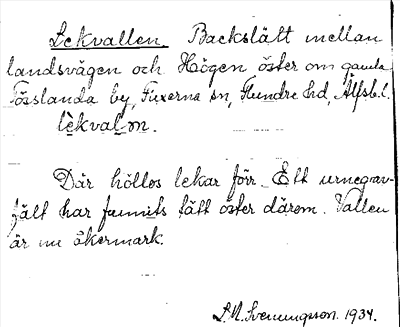 Lekvallen. Backslätt mellan
landsvägen och Högen öster om gamla
Tösslanda by, Fuxerna sn, Flundre hd, Älfsb.l.
lèkval·n.
Där höllos lekar förr. Ett urnegrav-
fält har funnits tätt öster därom. Vallen
är nu åkermark.
S.M. Svenungsson. 1934.